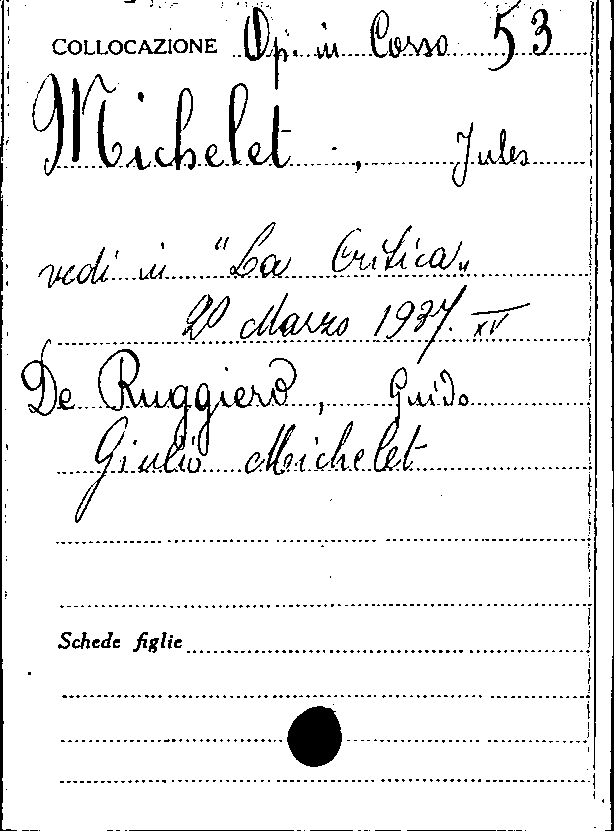 COLLOCAZIONE Op. in Corso 53
Michelet , Jules
vedi in "La Critica„
20 Marzo 1937. XV
De Ruggiero , Guido
Giulio Michelet
Schede figlie